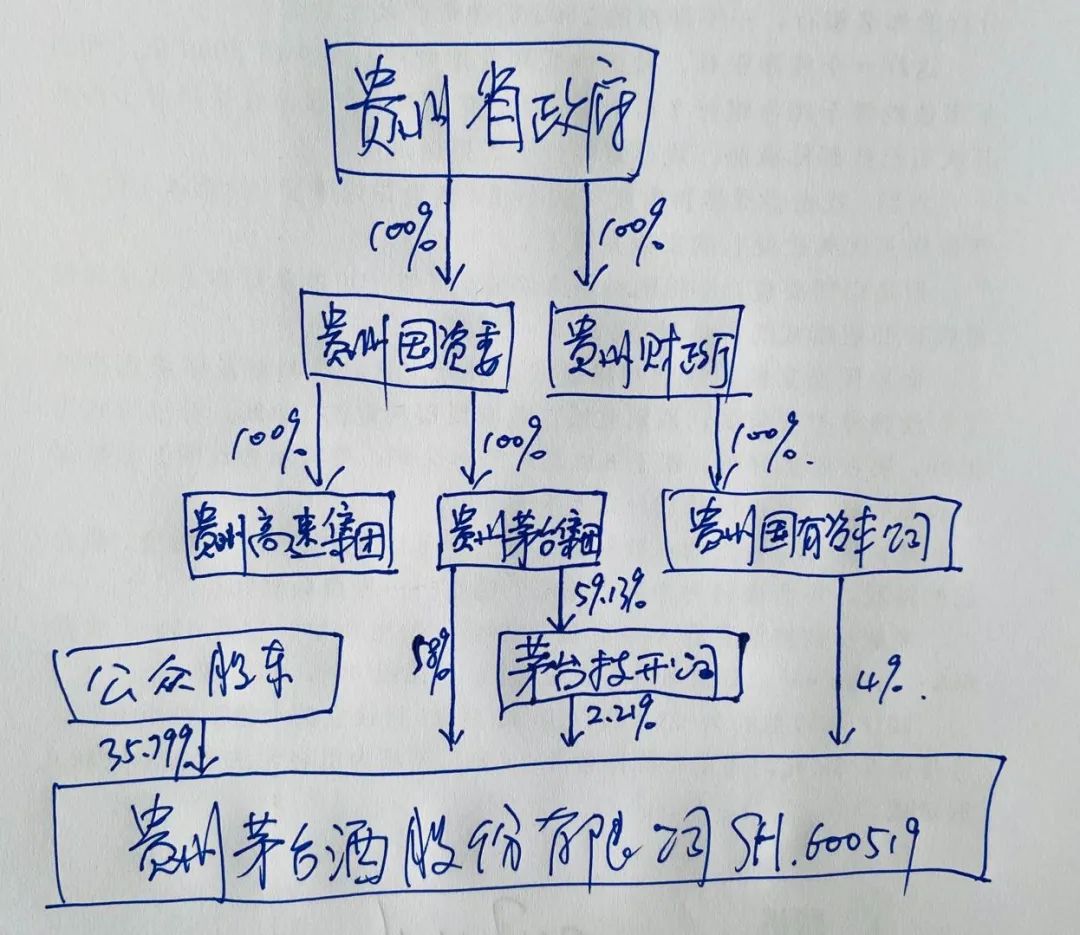 贵州省政府
100% 100%
贵州国资委 贵州财政厅
100% 100% 100%.
贵州高速集团 贵州茅台集团 贵州国有资本公司
59.13%
公众股东 58% 茅台技开公司 4%.
35.79% 2.21%
贵州茅台酒股份有限公司 SH.600519